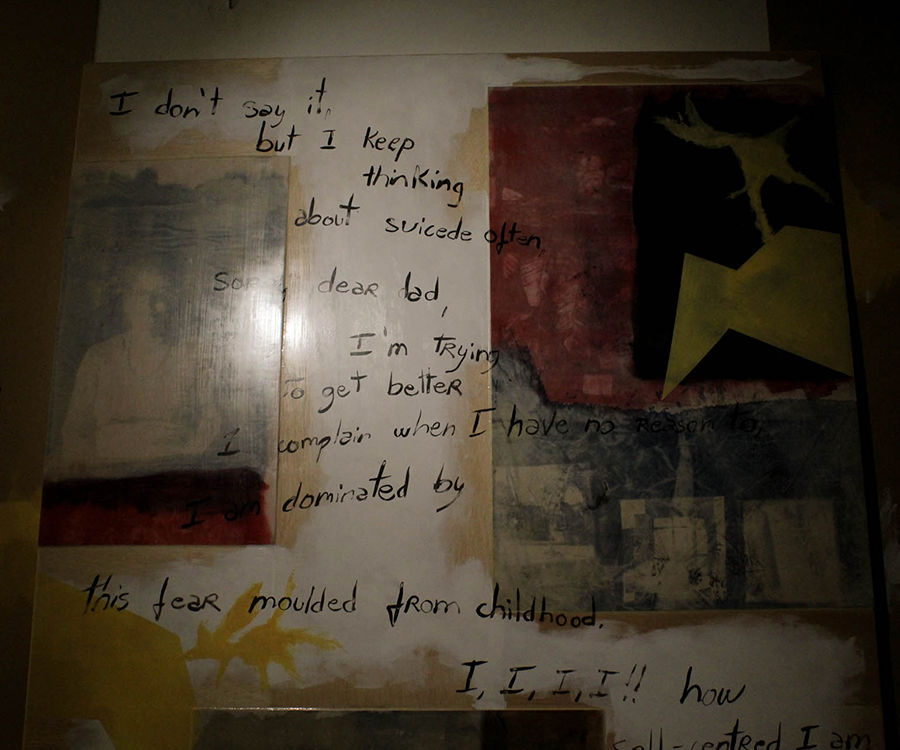 I don't say it,
but I keep
thinking
about suicede often,
Sorry dear dad,
I'm trying
to get better
I complain when I have no reason to,
I am dominated by
this fear moulded from childhood.
I, I, I, I!! how
self-centred I am